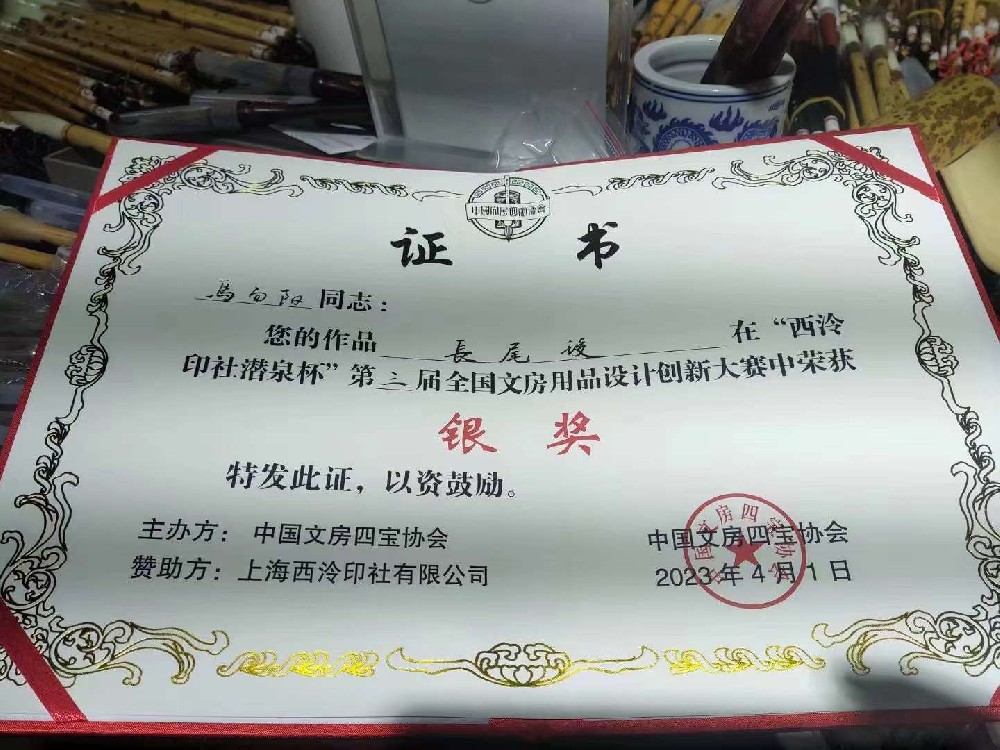 中国文房四宝协会
证 书
馮向阳同志：
您的作品 長尾锋 在“西泠
印社潜泉杯”第三届全国文房用品设计创新大赛中荣获
银 奖
特发此证，以资鼓励。
主办方：中国文房四宝协会
赞助方：上海西泠印社有限公司
中国文房四宝协会
2023年4月1日
中国文房四宝协会